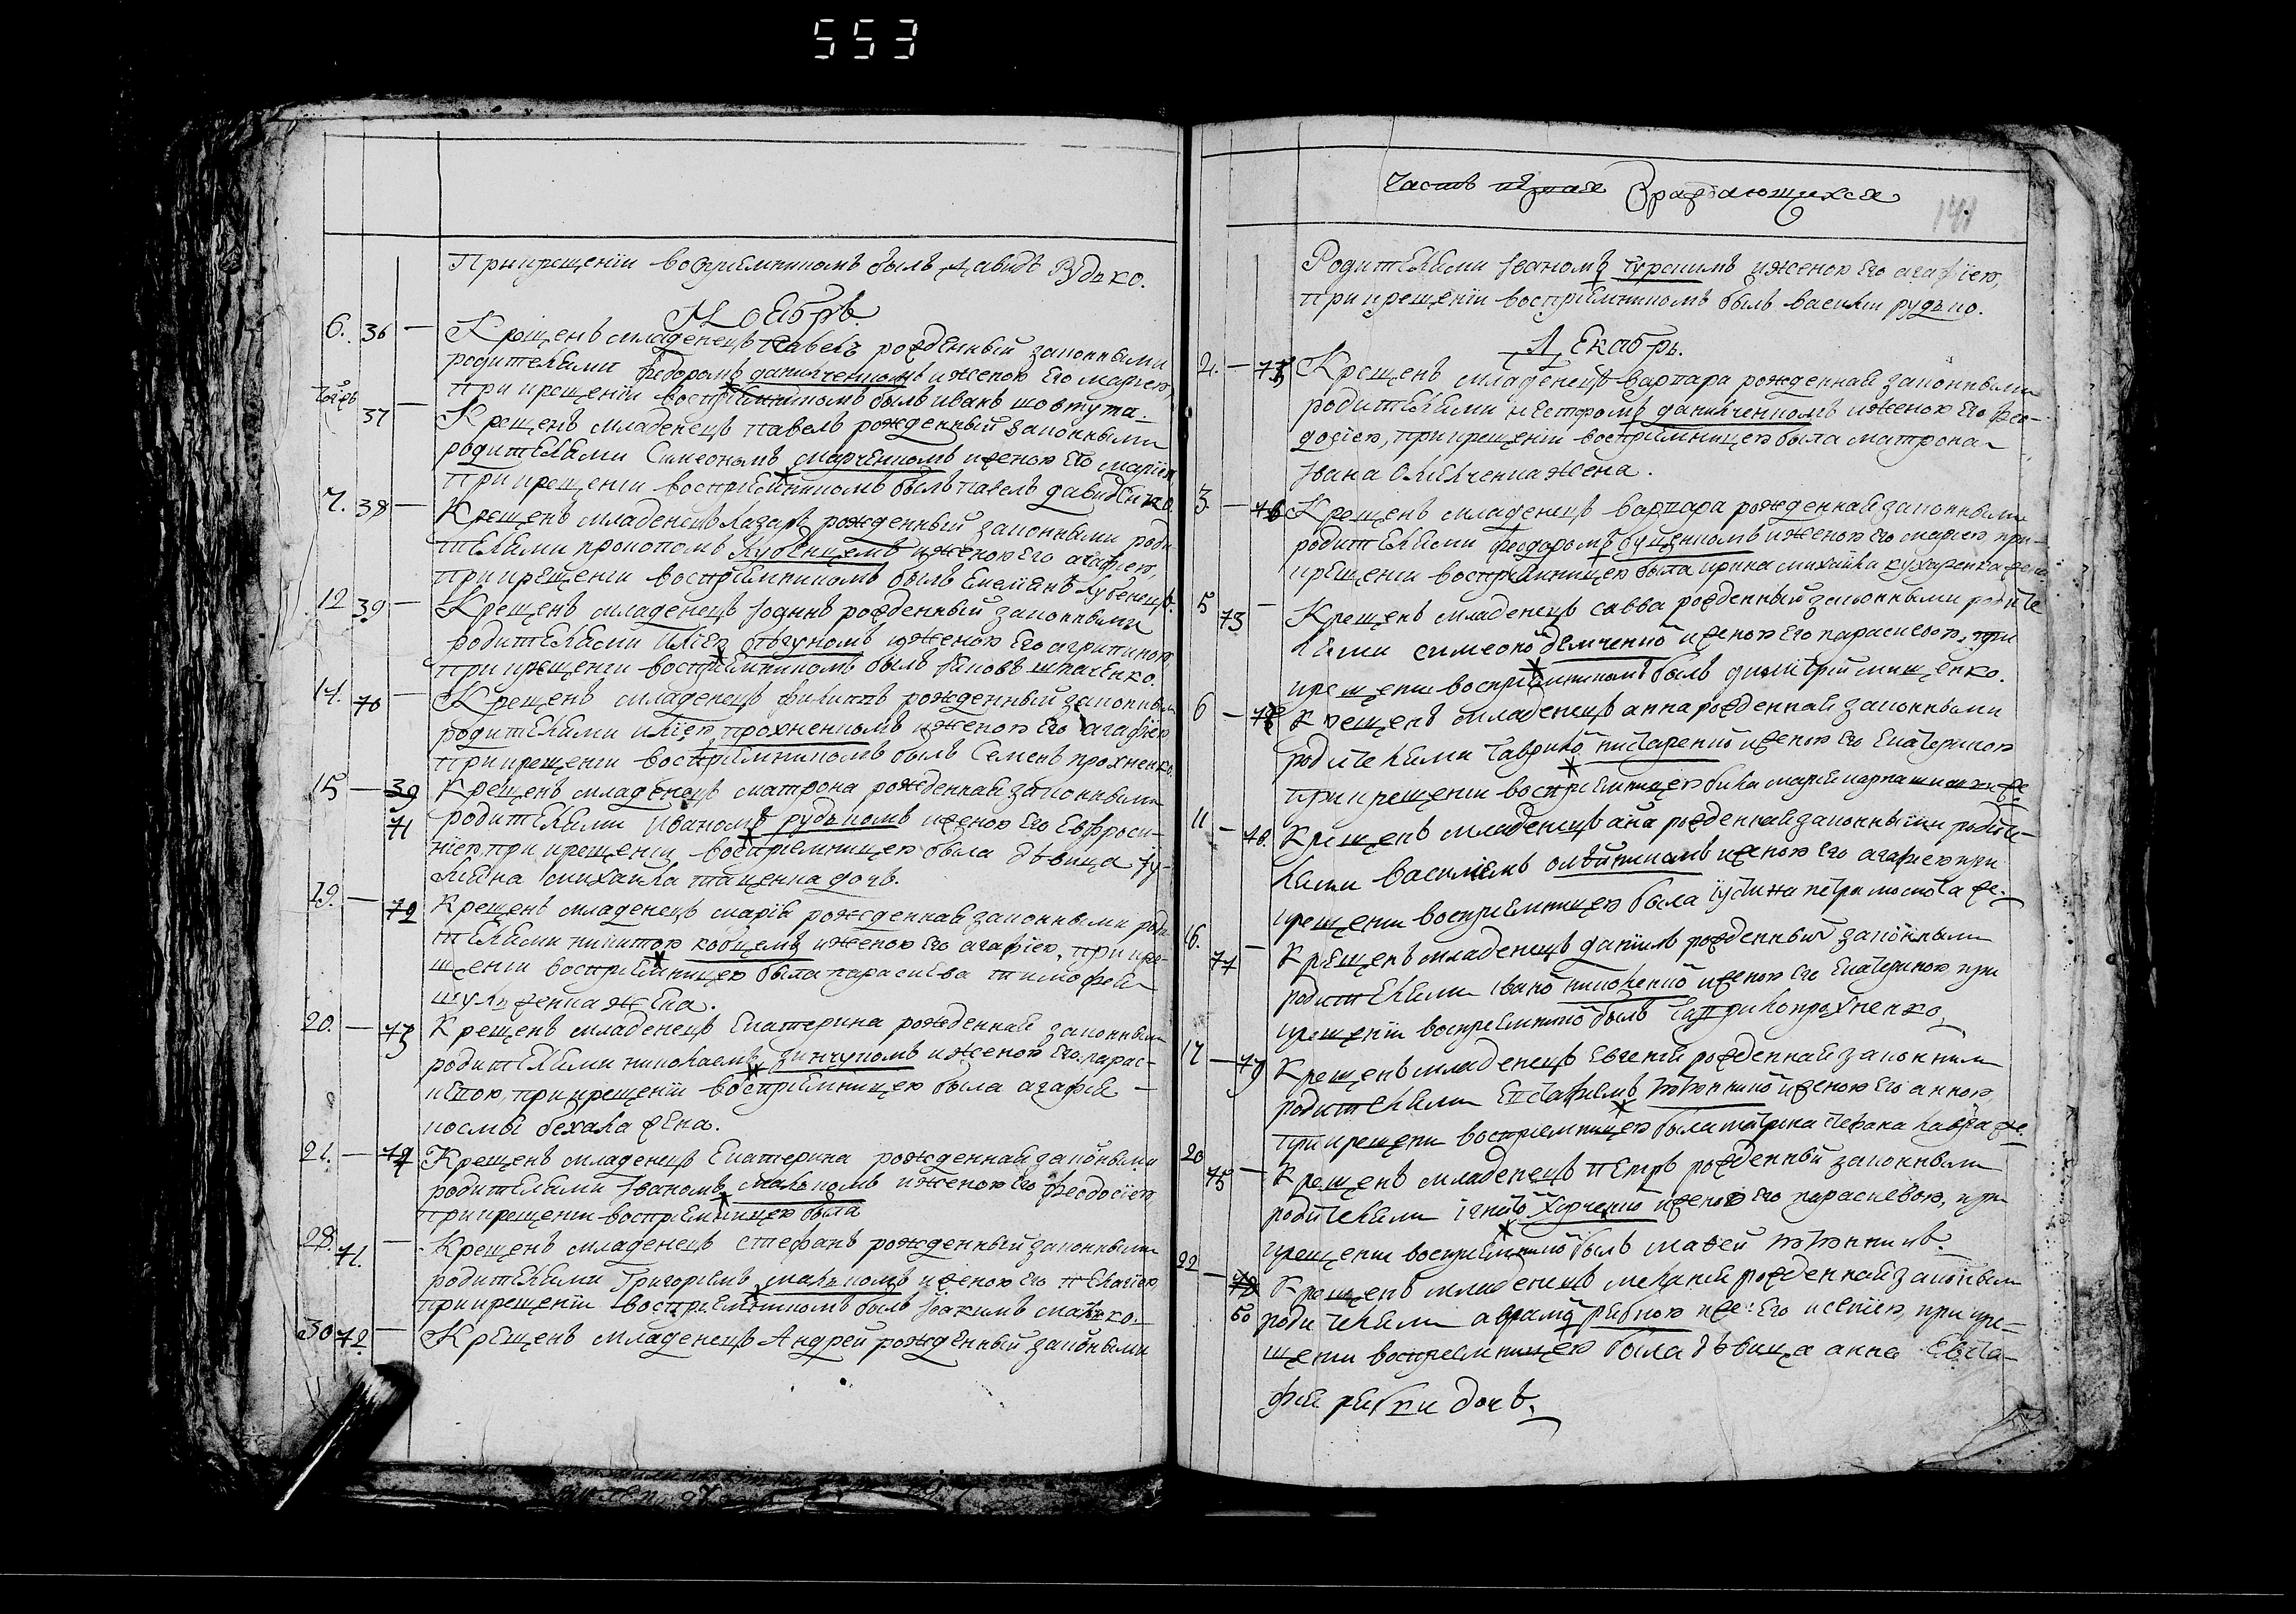 553
При крещеніи воспріемникомъ былъ давидъ Рудько.
Ноябрь
6. 36 — Крещенъ младенецъ павелъ рожденный законными
родителями федоромъ данилченкомъ и женою его маріею,
при крещеніи воспріемникомъ былъ иванъ шовтута.
тогожъ 37 — Крещенъ младенецъ павелъ рожденный законными
родителями Симеономъ марченкомъ и женою его маріею
при крещеніи воспріемникомъ былъ павелъ давиденко.
7. 38 — Крещенъ младенецъ лазарь рожденный законными роди
телями прокопомъ кубенцемъ и женою его агафіею,
при крещеніи воспріемникомъ былъ Емеліянъ кубенецъ.
12 39 — Крещенъ младенецъ Іоаннъ рожденный законными
родителями иліею женою его агрипиною
при крещеніи воспріемникомъ былъ яковъ шпаченко.
14. 70 — Крещенъ младенецъ филиппъ рожденный законными
родителями иліею прохненкомъ и женою его агафіею
при крещеніи воспріемникомъ былъ Семенъ прохненко.
15 — 39 Крещенъ младенецъ матрона рожденная законными
71 родителями иваномъ рудькомъ и женою его Евфроси-
ніею, при крещеніи воспріемницею была девица іу-
ліяна михайла тащенка дочь.
19. — 72 Крещенъ младенецъ марія рожденная законными роди
телями никитою кобцемъ и женою его агафіею, при кре-
щеніи воспріемницею была параскева тимофея
шулженка жена.
20. — 73 Крещенъ младенецъ Екатерина рожденная законными
родителями николаемъ зинчукомъ и женою его парас-
кевою, при крещеніи воспріемницею была агафія —
космы бехала жена.
21. — 74 Крещенъ младенецъ Екатерина рожденная законными
родителями Іваномъ малкомъ и женою его феодосіею,
при крещеніи воспріемницею была
28. 71. — Крещенъ младенецъ стефанъ рожденный законными
родителями Григоріемъ малькомъ и женою его пелагіею,
при крещеніи воспріемникомъ былъ Іоакимъ малько.
30 72 — Крещенъ младенецъ Андрей рожденный законными
Часть первая о раждающихся
141
Родителями Іваномъ чуркимъ и женою его агафіею,
при крещеніи воспріемникомъ былъ василій рудько.
Декабрь.
2. — 75 Крещенъ младенецъ варвара рожденная законными
родителями несторомъ данилченкомъ и женою его фео-
досіею, при крещеніи воспріемницею была матрона
Івана Омелченка жена.
3. — 76 Крещенъ младенецъ варвара рожденная законными
родителями феодоромъ буценкомъ и женою его маріею, при
крещеніи воспріемницею была ирина михайла кухаренка жена
5 73 — Крещенъ младенецъ савва рожденный законными родите
лями симеономъ демченкомъ и женою его параскевою, при
крещеніи воспріемникомъ былъ димитрій мищенко.
6 — Крещенъ младенецъ анна рожденная законными
родителями гавриломъ и женою его Екатериною
при крещеніи воспріемницею была марія
11 — 78. Крещенъ младенецъ анна рожденная законными родите-
лями василіемъ женою его агафіею при
крещеніи воспріемницею была іустина петра
16. 77 — Крещенъ младенецъ даніилъ рожденный законными
родителями иваномъ николенкомъ и женою его Екатериною при
крещеніи воспріемникомъ былъ прохненко.
17 — 79 Крещенъ младенецъ Евгенія рожденная законными
родителями Евстафіемъ женою его анною,
при крещеніи воспріемницею была
20 75 — Крещенъ младенецъ петръ рожденный законными
родителями игнатомъ Харченкомъ и женою его параскевою, при
крещеніи воспріемникомъ былъ матвей
22 — 78 Крещенъ младенецъ меланія рожденная законными
80 родителями аврамомъ рибкою и же: его ксеніею, при кре-
щеніи воспріемницею была девица анна Евста-
фія рибки дочь.